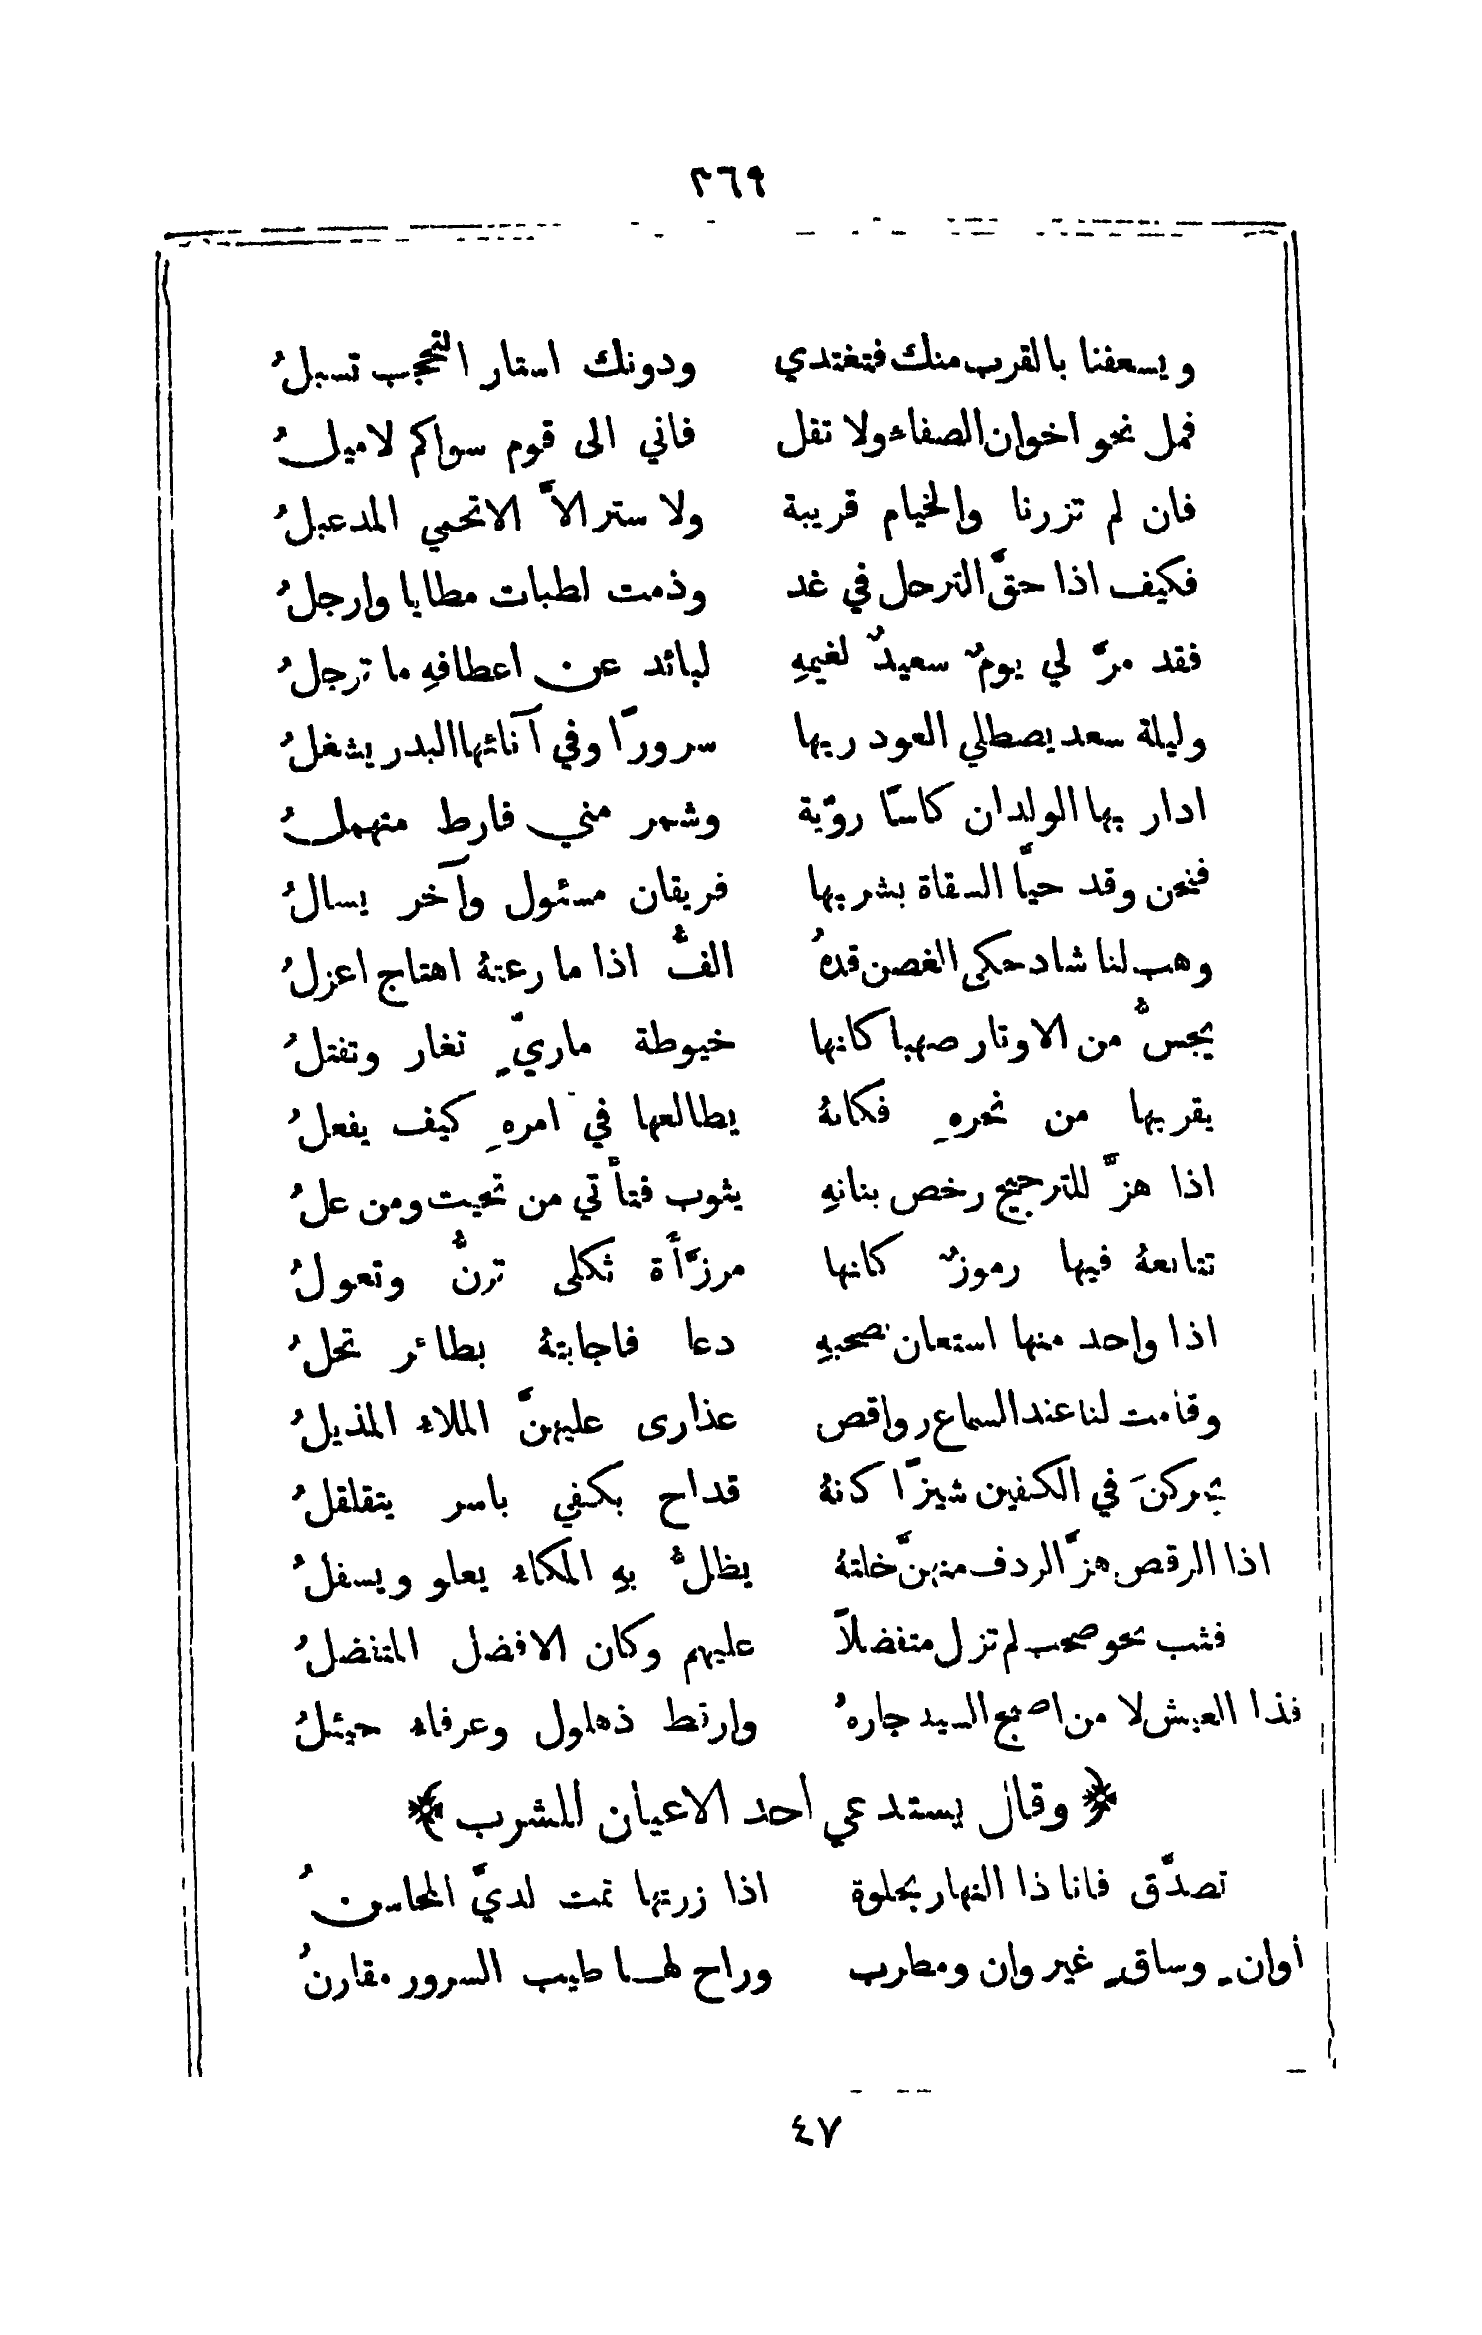 ٣٦٩
ويسعفنا بالقرب منك فتغتدي ودونك استار التحجب تسبلُ
فمل نحو اخوان الصفاء ولا تقل فاني الى قوم سواكم لاميلُ
فان لم تزرنا والخيام قريبة ولا ستر الاَّ الاتحمي المدعبلُ
فكيف اذا حقَّ الترحل في غد وذمت لطيات مطايا وارجلُ
فقد مرَّ لي يومٌ سعيدٌ لغيمهِ لبائد عن اعطافهِ ما ترجلُ
وليلة سعد يصطلي العود ربها سرورًا وفي آنائها البدر يشغلُ
ادار بها الولدان كاسًا رويّة وشمر مني فارط متهملُ
فنحن وقد حيَّا السقاة بشربها فريقان مسئول وآخر يسالُ
وهب لنا شاد حكى الغصن قدهُ الفُّ اذا ما رعتهُ اهتاج اعزلُ
يجسُّ من الاوتار صهبا كانها خيوطة ماريّ تغار وتفتلُ
يقربها من نحرهِ فكانهُ يطالعها في امرهِ كيف يفعلُ
اذا هزَّ للترجيح رخص بنانهِ يثوب فتأتي من تحيت ومن علُ
تتابعهُ فيها رموزٌ كانها مرزَّأة ثكلى ترنُّ وتعولُ
اذا واحد منها استعان بصحبهِ دعا فاجابتهُ بطائر تحلُ
وقامت لنا عند السماع رواقص عذارى عليهنَّ الملاء المذيلُ
يحركنَ في الكفين شيزًا كنهُ قداح بكفي ياسر يتقلقلُ
اذا الرقص هزَّ الردف منهنَّ خلتهُ يظلُّ بهِ المكاء يعلو ويسفلُ
فثب نحو صحب لم تزل متفضلاً عليهم وكان الافضل المتفضلُ
فذا العيش لا من اصبح السيد جارهُ وارقط ذهلول وعرفاء جيئلُ
﴿ وقال يستدعي احد الاعيان للشرب ﴾
تصدَّق فانا ذا النهار بحلوة اذا زرتها تمت لديَّ المحاسنُ
أوانٍ وساقٍ غير وان ومطرب وراح لهـا طيب السرور مقارنُ
٤٧